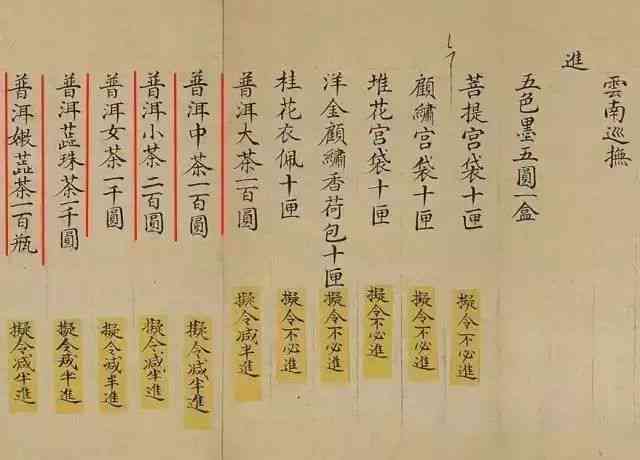 雲南巡撫
進
五色墨五圓一盒
菩提宮袋十匣
擬令不必進
顧繡宮袋十匣
擬令不必進
堆花宮袋十匣
擬令不必進
洋金顧繡香荷包十匣
擬令不必進
桂花衣佩十匣
擬令不必進
普洱大茶一百圓
擬令減半進
普洱中茶一百圓
擬令減半進
普洱小茶二百圓
擬令減半進
普洱女茶一千圓
擬令減半進
普洱蕋珠茶一千圓
擬令減半進
普洱嫩蕋茶一百瓶
擬令減半進